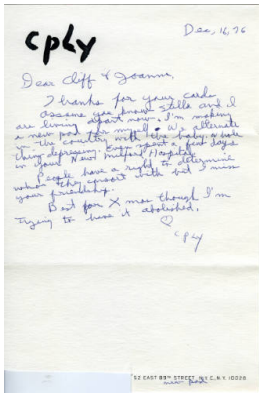 cply
Dec, 16, 76
Dear Cliff & Joanne,
Thanks for your card.
Assume you know Stella and I
are living apart now. I'm making
a new pad for myself. We alternate
in the country with the baby, a whole
thing depressing. Even spent a few days
in your New Milford Hospital.
People have a right to determine
what they consort with but I miss
your friendship.
Best for X mas though I'm
trying to have it abolished.
♡
cply
52 EAST 89TH STREET, N.Y.C., N.Y. 10028
new pad